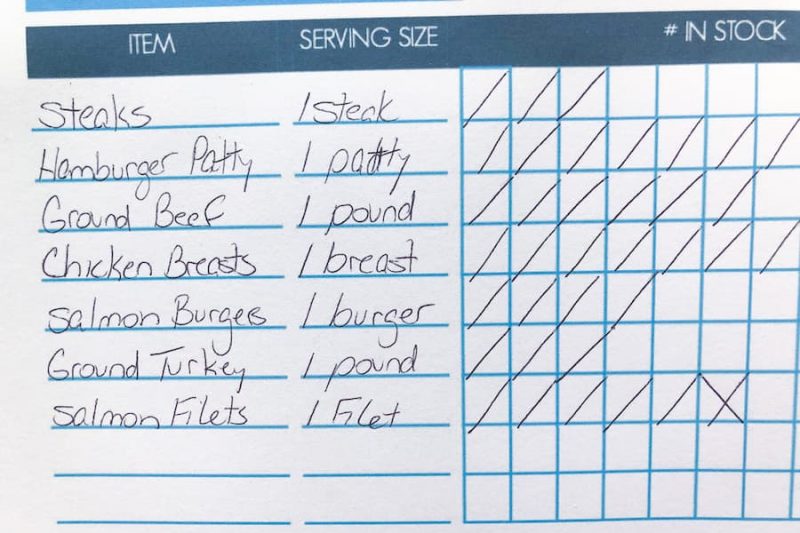 ITEM SERVING SIZE # IN STOCK
Steaks 1 Steak
Hamburger Patty 1 patty
Ground Beef 1 pound
Chicken Breasts 1 breast
Salmon Burgers 1 burger
Ground Turkey 1 pound
Salmon Filets 1 Filet